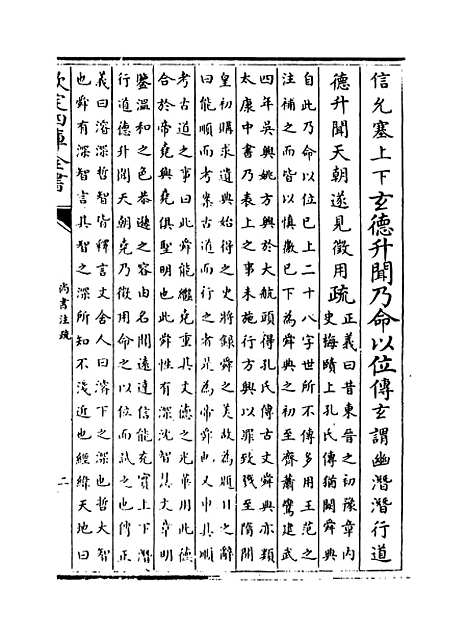 信允塞上下玄德升聞乃命以位傳玄謂幽潛潛行道
德升聞天朝遂見徵用疏
正義曰昔東晉之初豫章内
史梅賾上孔氏傳猶闕舜典
自此乃命以位已上二十八字世所不傳多用王范之
注補之而皆以慎徽已下為舜典之初至齊蕭鸞建武
四年吳興姚方興於大航頭得孔氏傳古文舜典亦類
太康中書乃表上之事未施行方興以罪致戮至隋開
皇初購求遺典始得之史將錄舜之美故為題目之辭
曰能順而考案古道而行之者是為帝舜也又申其順
考古道之事曰此舜能繼堯重其文德之光華用此德
合於帝堯與堯俱聖明也此舜性有深沈智慧文章明
鑒溫和之色恭遜之容由名聞遠達信能充實上下潛
行道德升聞天朝堯乃徵用命之以位而試之也傳正
義曰濬深哲智皆釋言文舍人曰濬下之深也哲大智
也舜有深智言其智之深所知不淺近也經緯天地曰
欽定四庫全書
尚書注疏
二